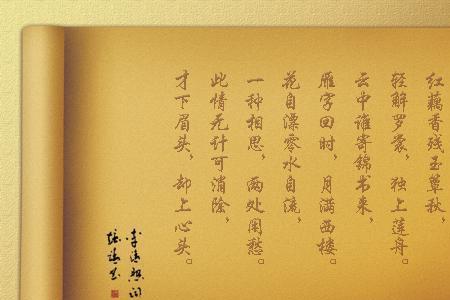 红藕香残玉簟秋，
轻解罗裳，独上莲舟。
云中谁寄锦书来，
雁字回时，月满西楼。
花自漂零水自流，
一种相思，两处闲愁。
此情无计可消除，
才下眉头，却上心头。